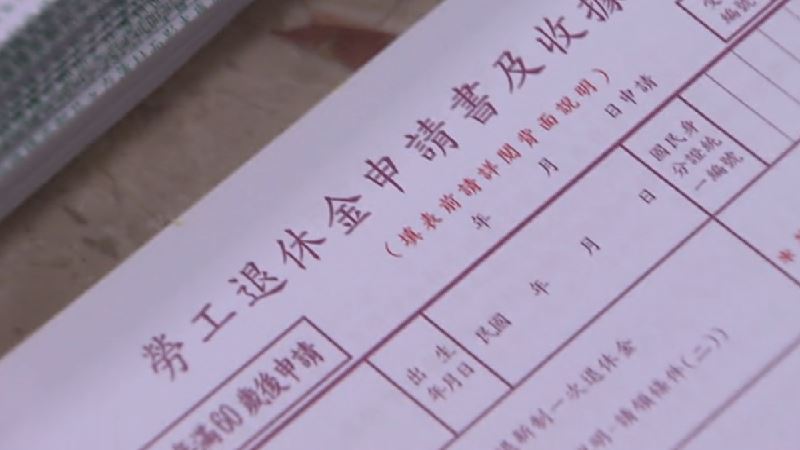 勞工退休金申請書及收據
(填表前請詳閱背面說明)
年 月 日申請
編號
滿60歲後申請
出生
年月日
民國 年 月 日
國民身
分證統
一編號
新制一次退休金